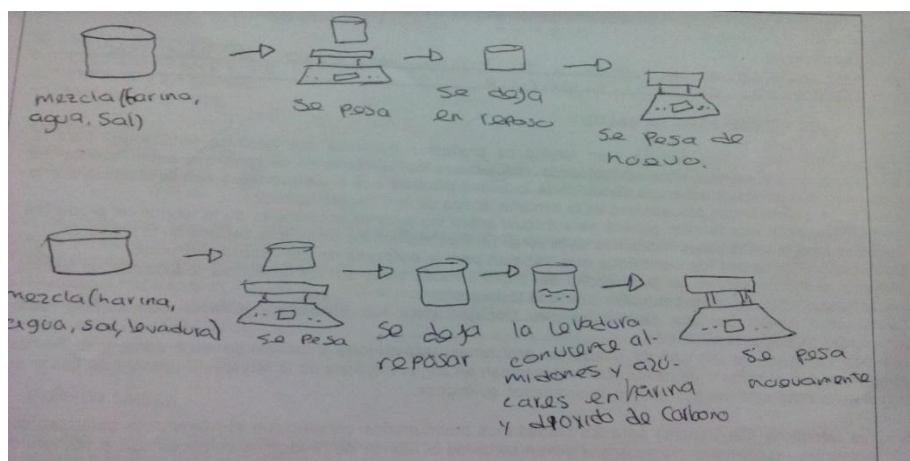 mezcla(farina,
agua, sal)
se pesa
se deja
en reposo
se pesa de
nuevo.
mezcla(harina,
agua, sal, levadura)
se pesa
se deja
reposar
la levadura
convierte al-
midones y azú-
cares en harina
y dióxido de carbono
se pesa
nuevamente